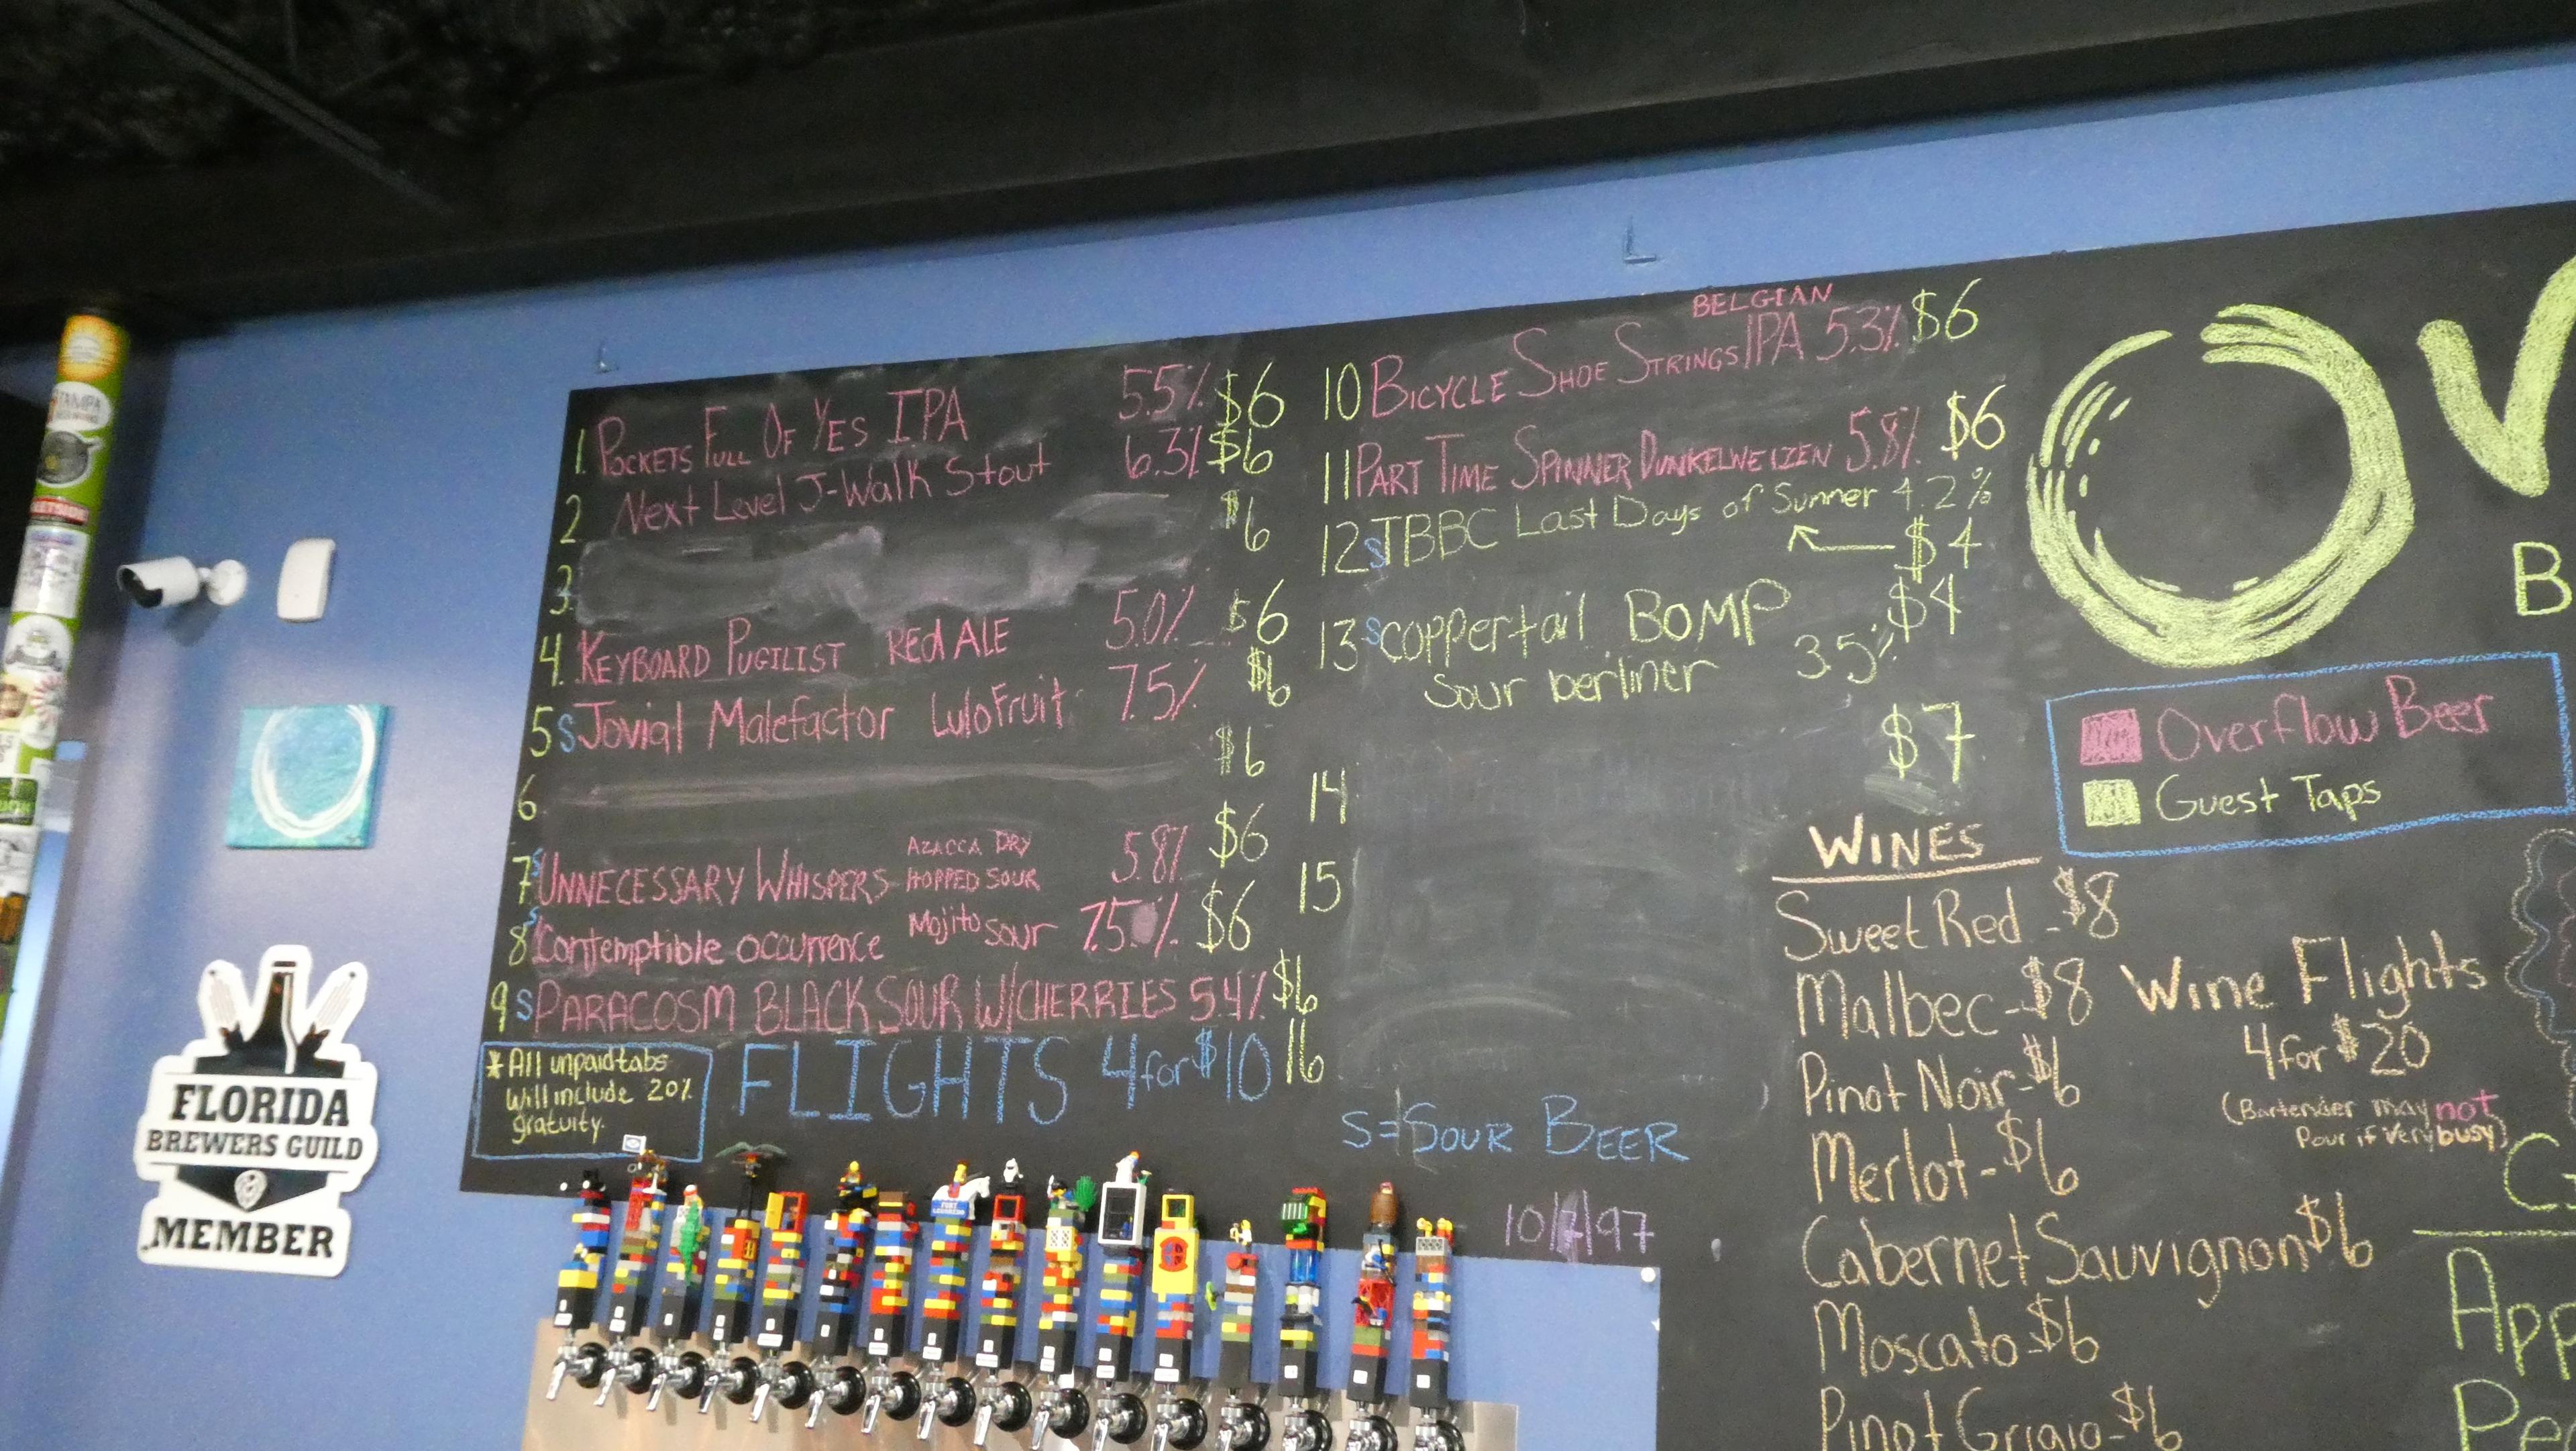 1. POCKETS FULL OF YES IPA 5.5% $6
2 Next Level J-Walk Stout 6.3% $6
3. $6
4. KEYBOARD PUGILIST RED ALE 5.0% $6
5 S Jovial Malefactor Lulo Fruit 7.5% $6
6. $6
7 S UNNECESSARY WHISPERS AZACCA DRY HOPPED SOUR 5.8% $6
8 S Contemptible occurrence Mojito sour 7.5% $6
9 S PARACOSM BLACK SOUR W/CHERRIES 5.4% $6
* All unpaid tabs
will include 20%
gratuity.
FLIGHTS 4 for $10
BELGIAN
10 BICYCLE SHOE STRINGS IPA 5.3% $6
11 PART TIME SPINNER DUNKELWEIZEN 5.8% $6
12 S TBBC Last Days of Summer 4.2%
$4
13 S coppertail BOMP $4
sour berliner 3.5%
$7
14
15
16
S=SOUR BEER
10/7/97
OV
B
Overflow Beer
Guest Taps
WINES
Sweet Red - $8
Malbec - $8
Pinot Noir - $6
Merlot - $6
Cabernet Sauvignon $6
Moscato $6
Pinot Grigio - $6
Wine Flights
4 for $20
(Bartender may not
Pour if very busy)
C
App
Pe
FLORIDA
BREWERS GUILD
MEMBER
TAMPA